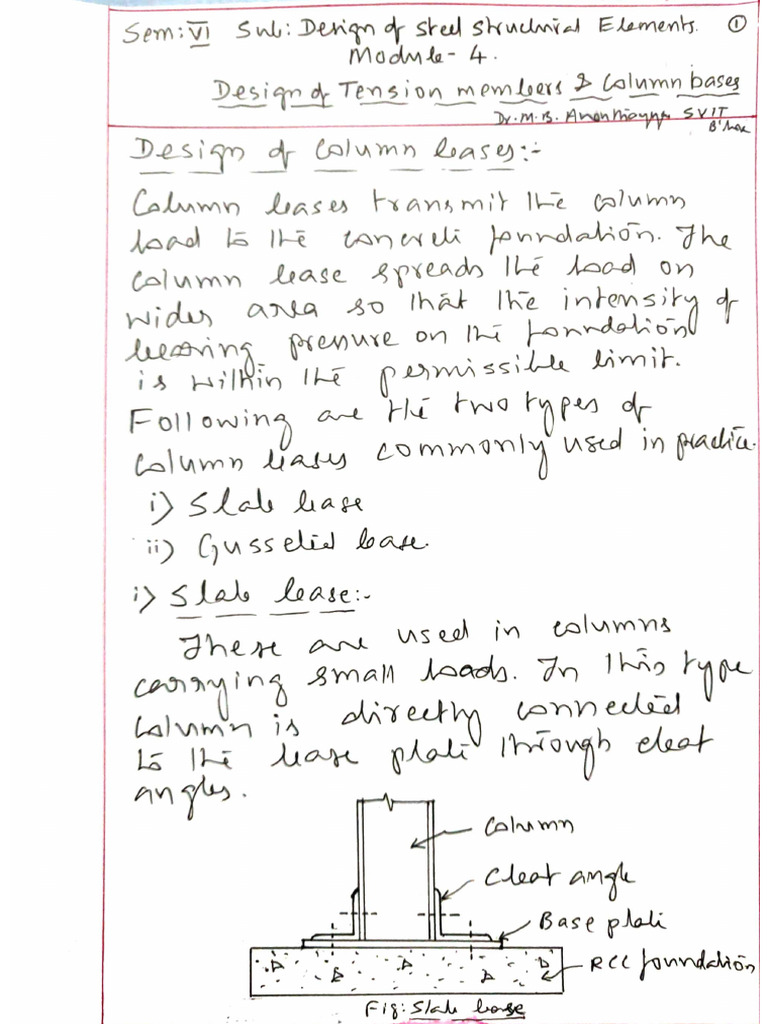 Sem: VI Sub: Design of Steel Structural Elements. ①
Module - 4.
Design of Tension members & Column bases
Dr. M. B. SVIT
Design of Column bases:-
Column bases transmit the column
load to the concrete foundation. The
column base spreads the load on
wider area so that the intensity of
bearing pressure on the foundation
is within the permissible limit.
Following are the two types of
column bases commonly used in practice.
i) Slab base
ii) Gusseted base.
i) Slab base:-
These are used in columns
carrying small loads. In this type
column is directly connected
to the base plate through cleat
angles.
Column
Cleat angle
Base plate
RCC foundation
Fig: Slab base